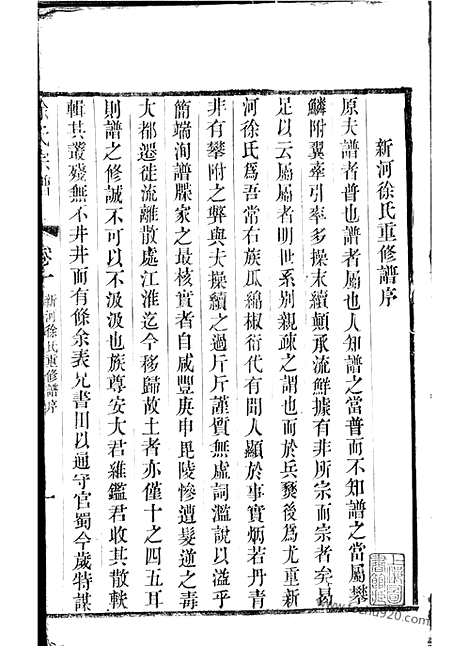 新河徐氏重修譜序
原夫譜者普也譜者屬也人知譜之當普而不知譜之當屬攀
鱗附翼牽引率多操末續顛承流鮮據有非所宗而宗者矣曷
足以云屬屬者明世系別親疎之謂也而於兵燹後爲尤重新
河徐氏爲吾常右族瓜綿椒衍代有聞人顯於事實炳若丹青
非有攀附之弊與夫操續之過斤斤謹質無虛詞濫說以溢乎
簡端洵譜牒家之最核實者自咸豐庚申毘陵慘遭髮逆之毒
大都遷徙流離散處江淮迄今移歸故土者亦僅十之四五耳
則譜之修誠不可不汲汲也族尊安大君維鑑君收其散軼
輯其叢殘無不井井而有條余表兄書田以通守官蜀今歲特謀
徐氏宗譜
卷一
新河徐氏重修譜序
一
book920.com